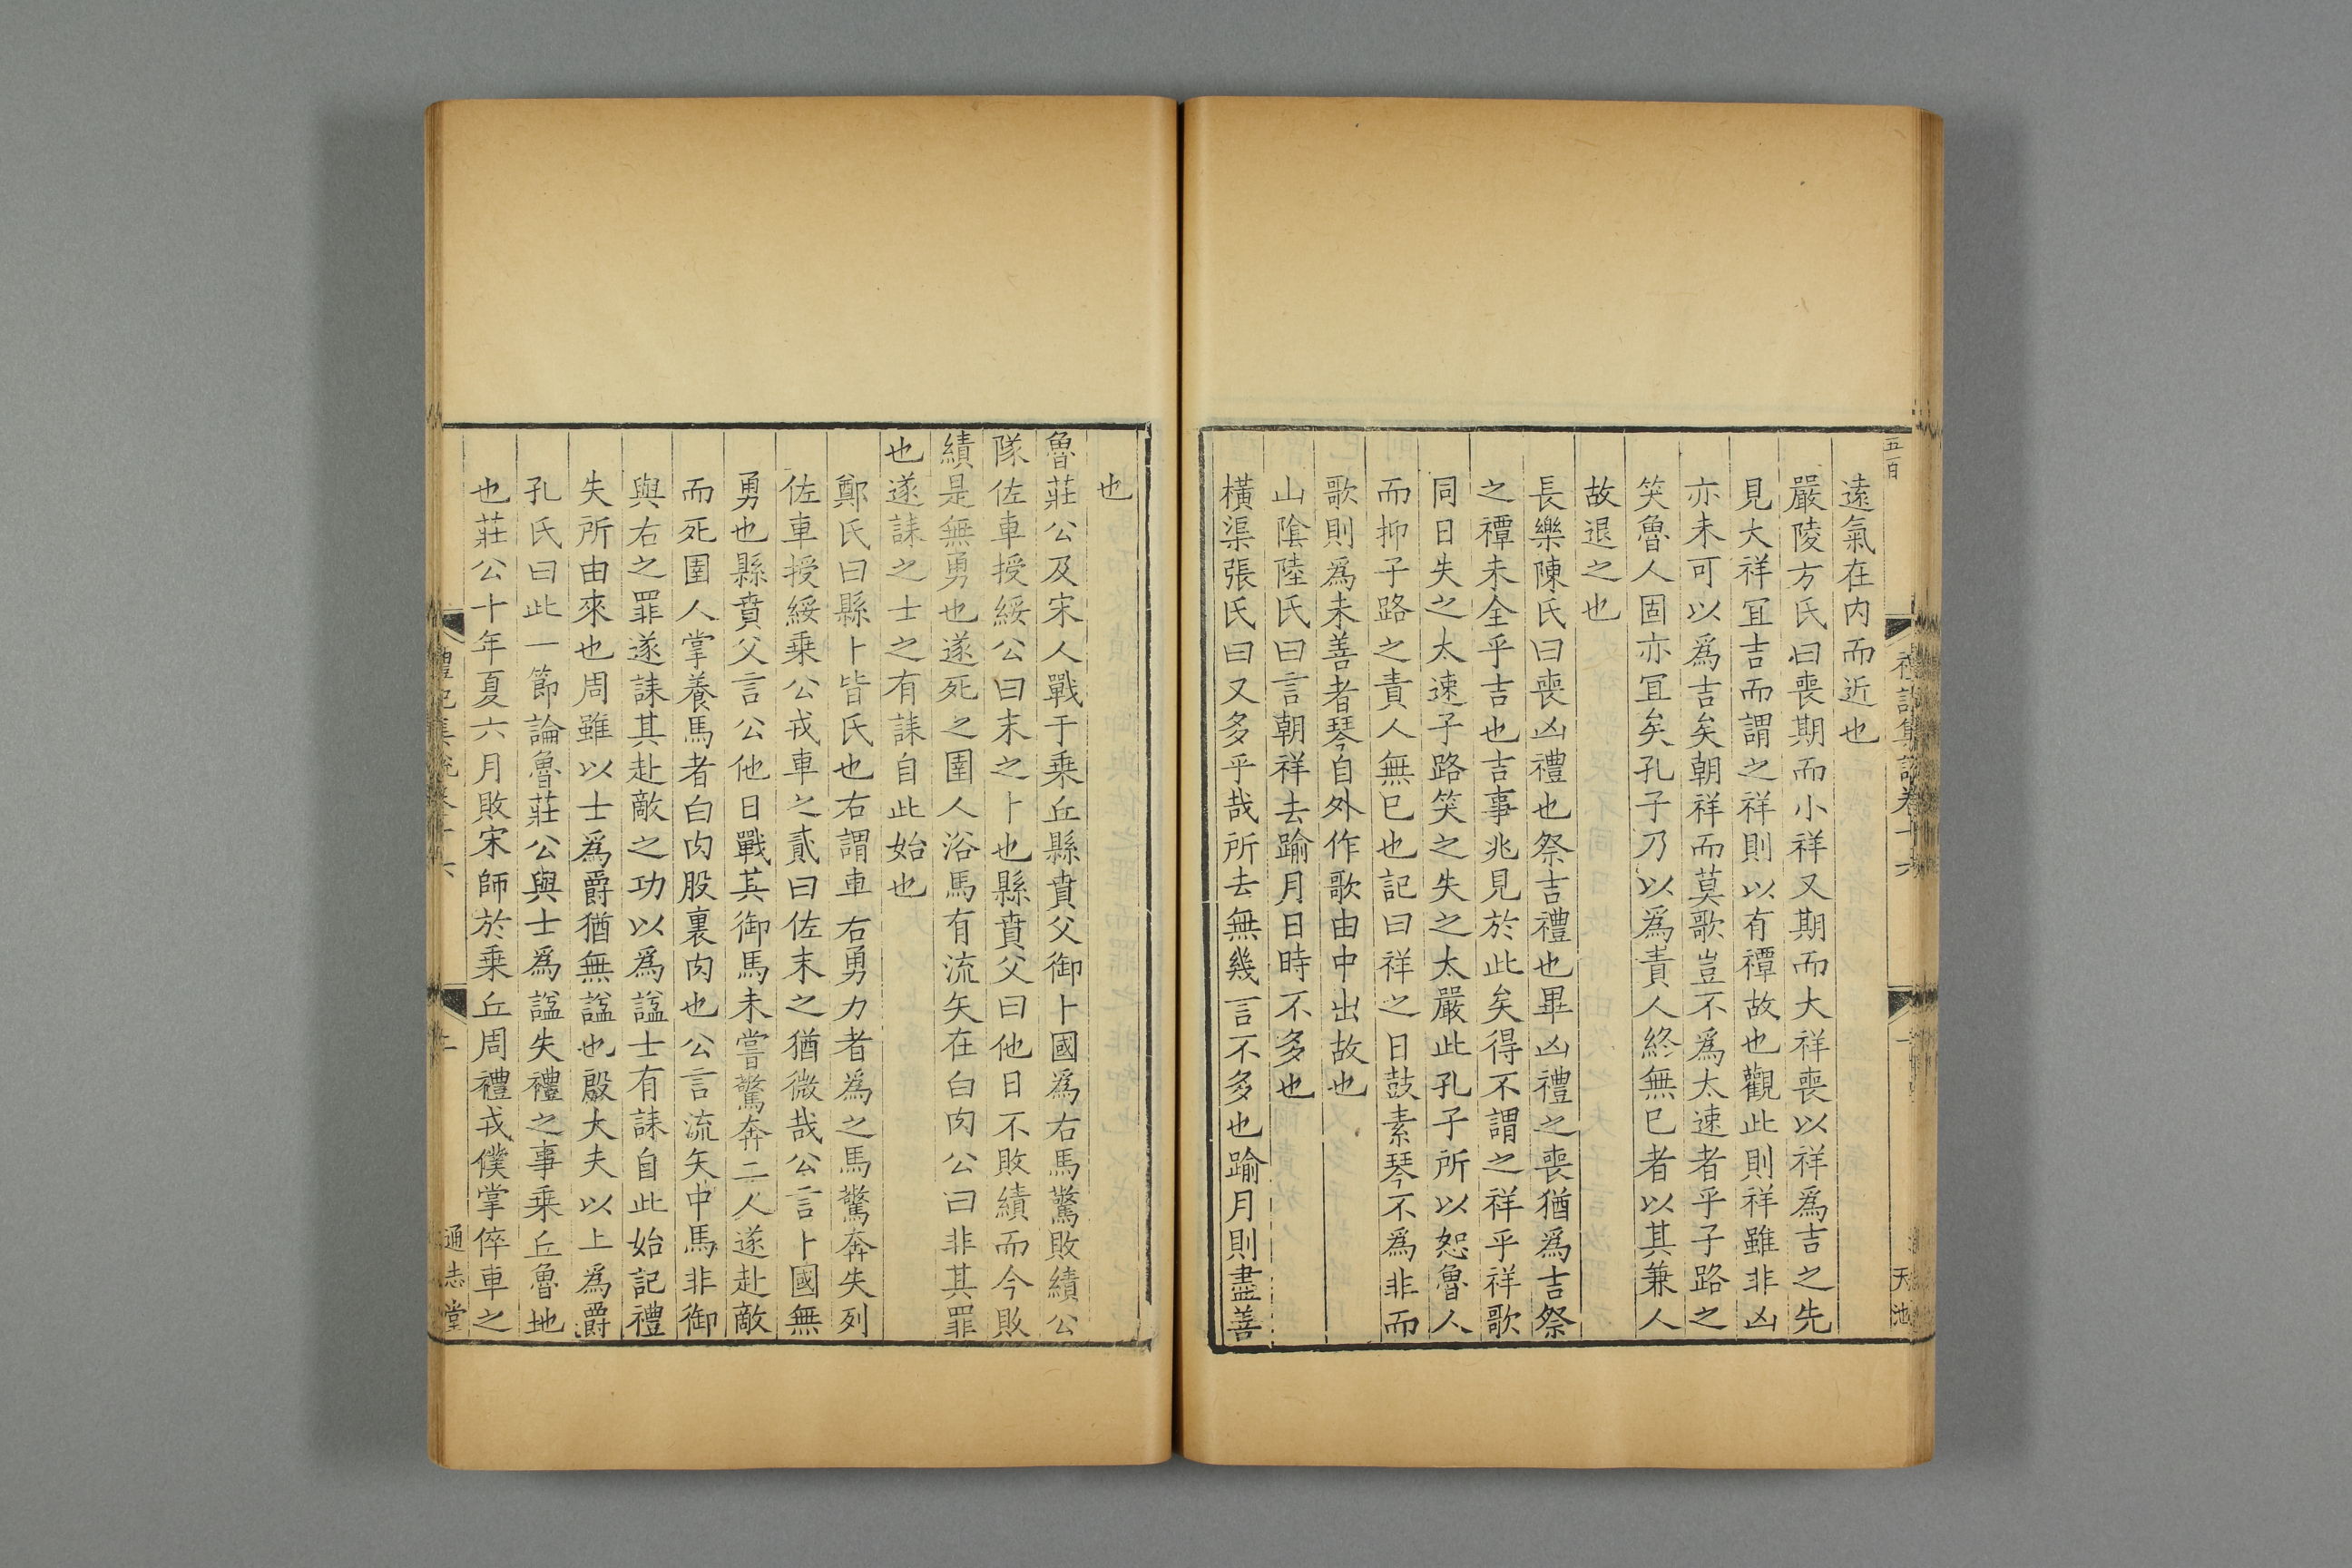 五百
禮記集說卷十六
一
天池
遠氣在內而近也
嚴陵方氏曰喪期而小祥又期而大祥喪以祥爲吉之先
見大祥冝吉而謂之祥則以有禫故也觀此則祥雖非凶
亦未可以爲吉矣朝祥而莫歌豈不爲太速者乎子路之
笑魯人固亦冝矣孔子乃以爲責人終無已者以其兼人
故退之也
長樂陳氏曰喪凶禮也祭吉禮也畢凶禮之喪猶爲吉祭
之禫未全乎吉也吉事兆見於此矣得不謂之祥乎祥歌
同日失之太速子路笑之失之太嚴此孔子所以恕魯人
而抑子路之責人無已也記曰祥之日鼓素琴不爲非而
歌則爲未善者琴自外作歌由中出故也
山隂陸氏曰言朝祥去踰月日時不多也
橫渠張氏曰又多乎哉所去無幾言不多也踰月則盡善
也
魯莊公及宋人戰于乗丘縣賁父御卜國爲右馬驚敗績公
隊佐車授綏公曰末之卜也縣賁父曰他日不敗績而今敗
績是無勇也遂死之圉人浴馬有流矢在白肉公曰非其罪
也遂誄之士之有誄自此始也
鄭氏曰縣卜皆氏也右謂車右勇力者爲之馬驚奔失列
佐車授綏乗公戎車之貳曰佐末之猶微哉公言卜國無
勇也縣賁父言公他日戰其御馬未嘗驚奔二人遂赴敵
而死圉人掌養馬者白肉股裏肉也公言流矢中馬非御
與右之罪遂誄其赴敵之功以爲諡士有誄自此始記禮
失所由來也周雖以士爲爵猶無諡也殷大夫以上爲爵
孔氏曰此一節論魯莊公與士爲諡失禮之事乗丘魯地
也莊公十年夏六月敗宋師於乗丘周禮戎僕掌倅車之
禮記集說卷十六
二
通志堂